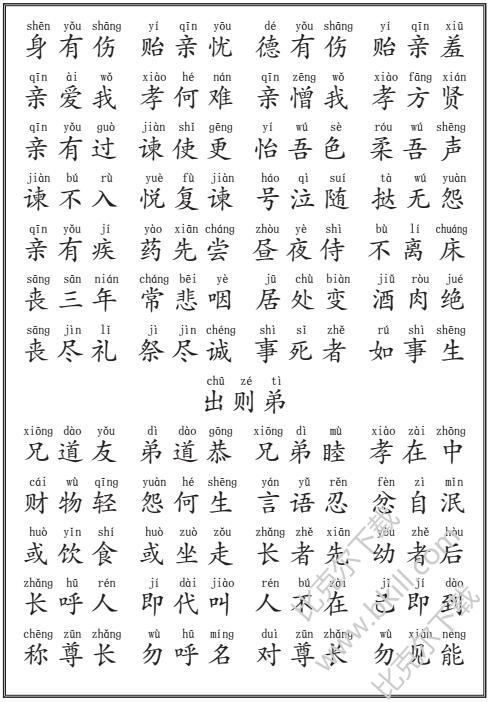 shēn yǒu shāng yí qīn yōu dé yǒu shāng yí qīn xiū
身有伤 贻亲忧 德有伤 贻亲羞
qīn ài wǒ xiào hé nán qīn zēng wǒ xiào fāng xián
亲爱我 孝何难 亲憎我 孝方贤
qīn yǒu guò jiàn shǐ gēng yí wú sè róu wú shēng
亲有过 谏使更 怡吾色 柔吾声
jiàn bú rù yuè fù jiàn háo qì suí tà wú yuàn
谏不入 悦复谏 号泣随 挞无怨
qīn yǒu jí yào xiān cháng zhòu yè shì bù lí chuáng
亲有疾 药先尝 昼夜侍 不离床
sāng sān nián cháng bēi yè jū chù biàn jiǔ ròu jué
丧三年 常悲咽 居处变 酒肉绝
sāng jìn lǐ jì jìn chéng shì sǐ zhě rú shì shēng
丧尽礼 祭尽诚 事死者 如事生
chū zé tì
出则弟
xiōng dào yǒu dì dào gōng xiōng dì mù xiào zài zhōng
兄道友 弟道恭 兄弟睦 孝在中
cái wù qīng yuàn hé shēng yán yǔ rěn fèn zì mǐn
财物轻 怨何生 言语忍 忿自泯
huò yǐn shí huò zuò zǒu zhǎng zhě xiān yòu zhě hòu
或饮食 或坐走 长者先 幼者后
zhǎng hū rén jí dài jiào rén bú zài jǐ jí dào
长呼人 即代叫 人不在 己即到
chēng zūn zhǎng wù hū míng duì zūn zhǎng wù xiàn néng
称尊长 勿呼名 对尊长 勿见能
比克尔下载
www.bkill.com
比克尔下载